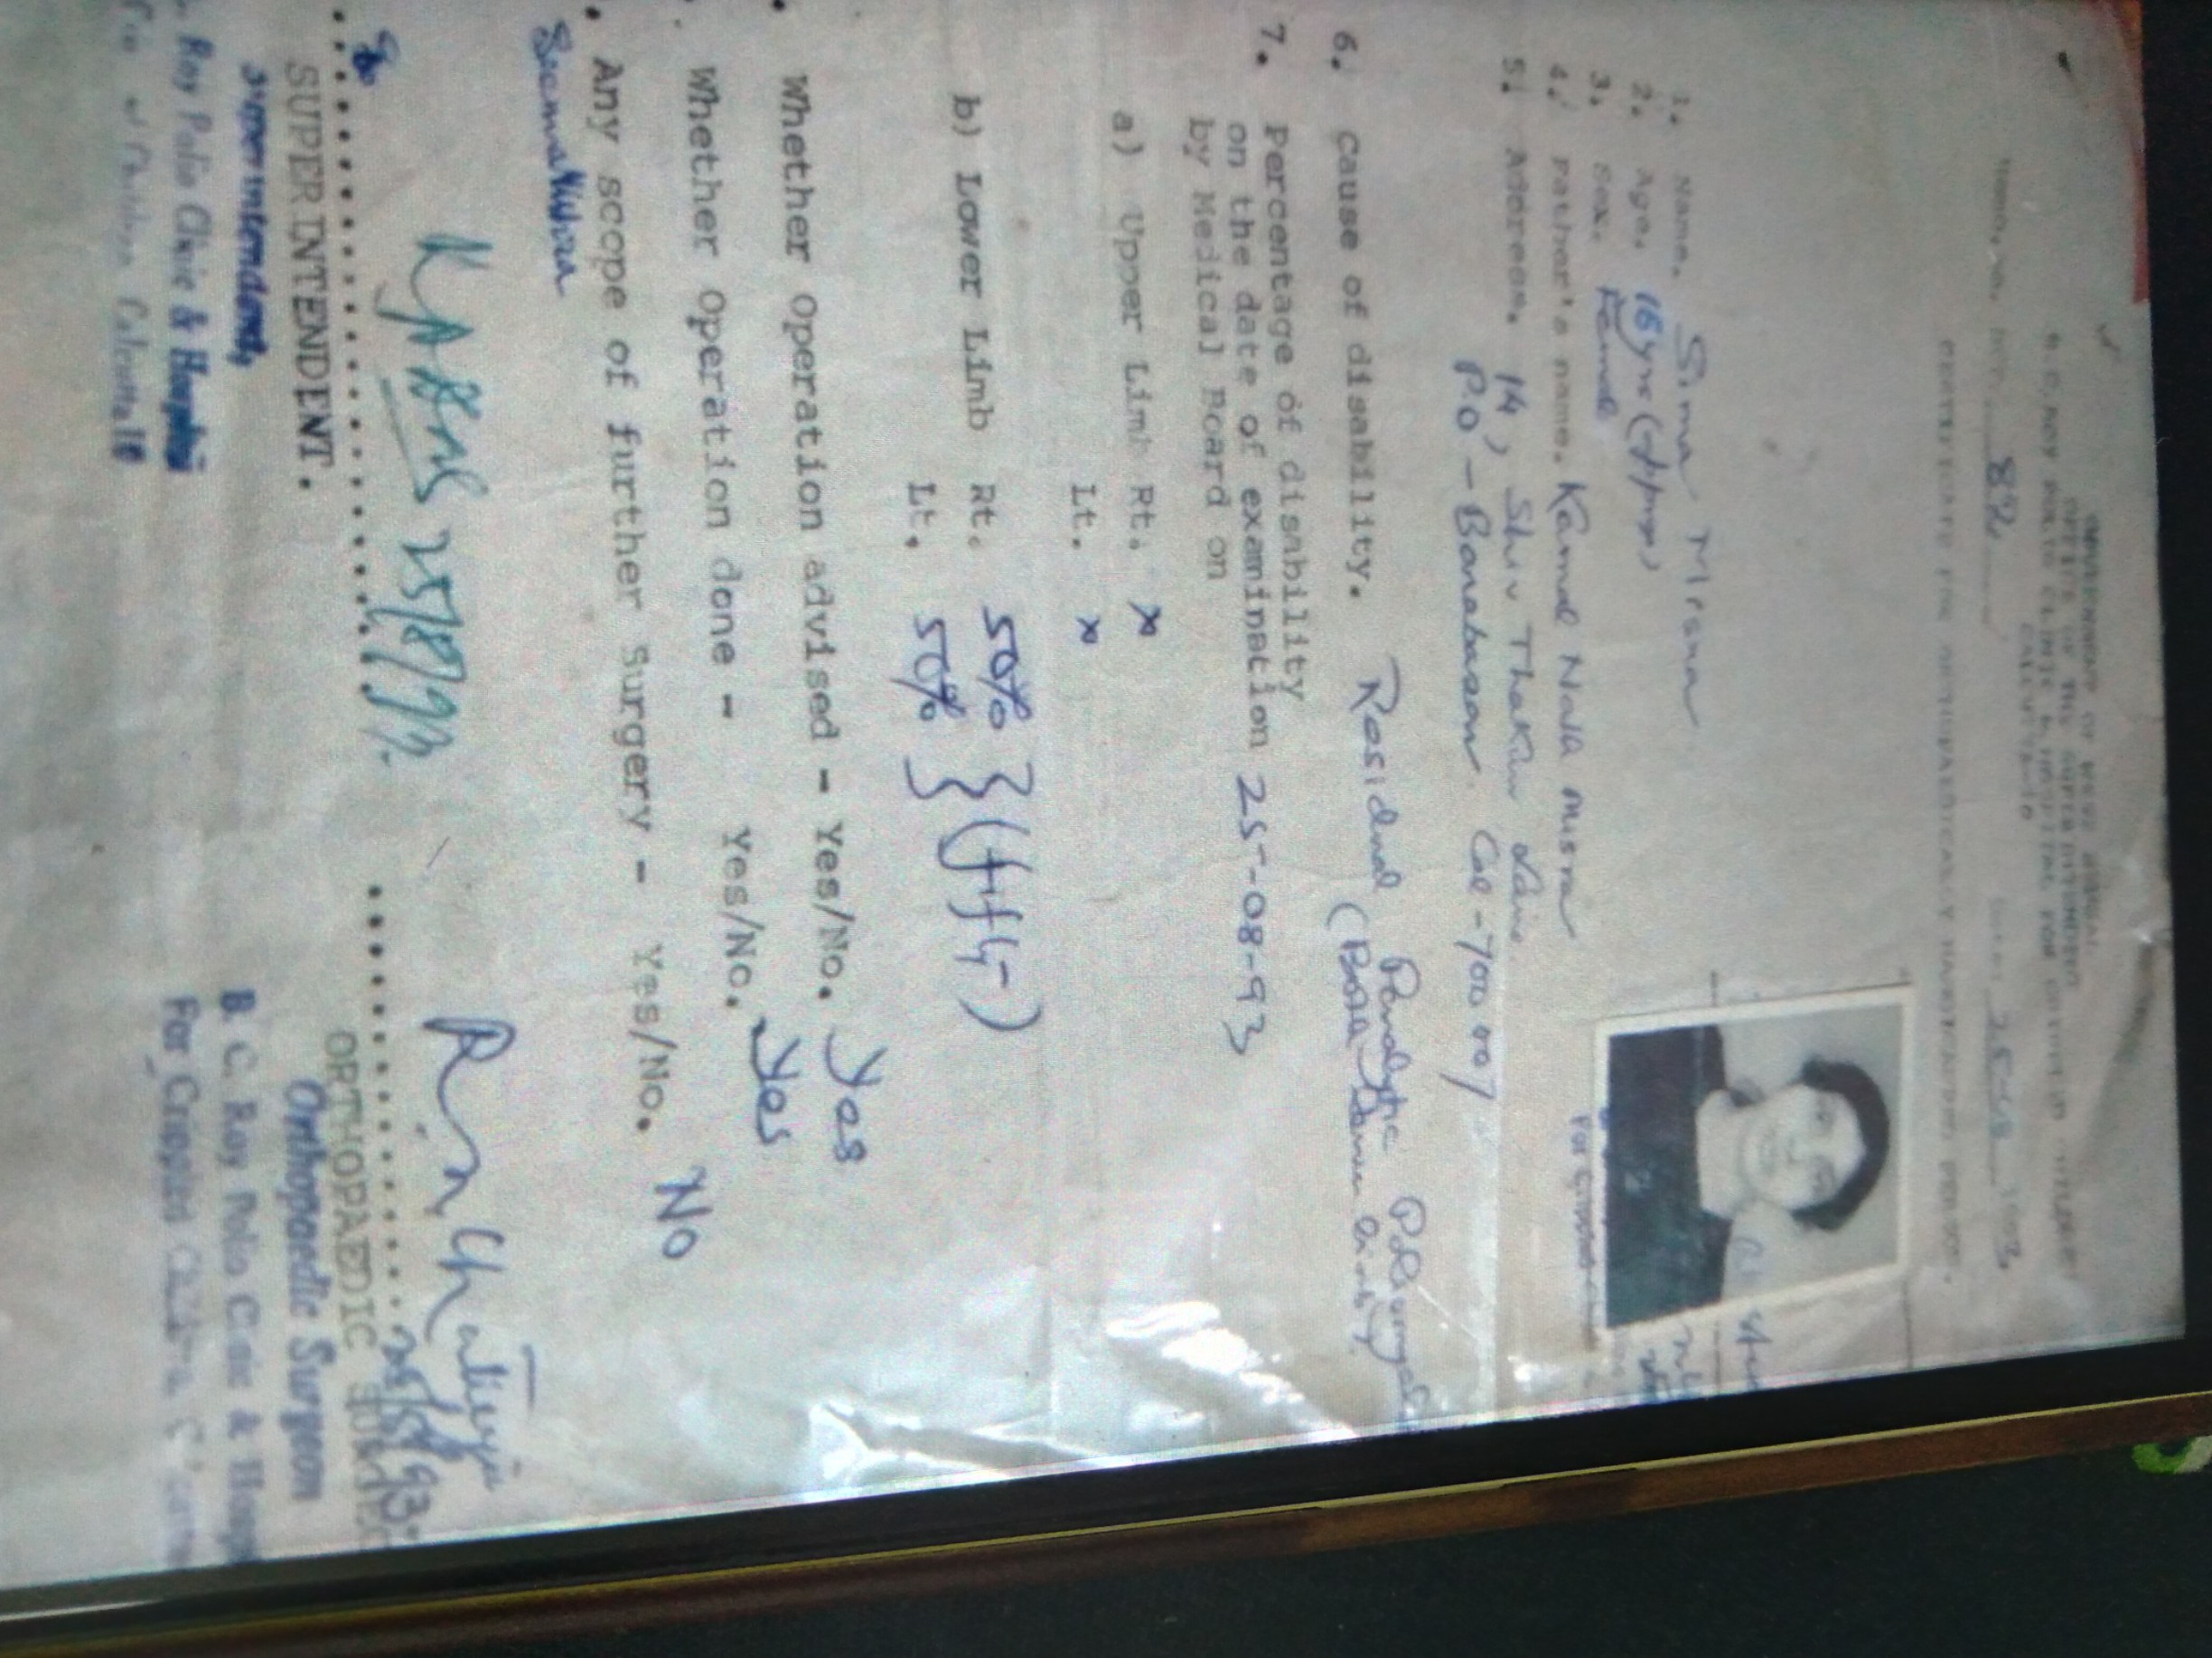 GOVERNMENT OF WEST BENGAL
OFFICE OF THE SUPERINTENDENT
B.C. ROY POLIO CLINIC & HOSPITAL FOR CRIPPLED CHILDREN
CALCUTTA-10
892 25 1993
CERTIFICATE FOR ORTHOPAEDICALLY HANDICAPPED PERSON.
1. Name. Sima Misra
2. Age. 16 yrs (Approx)
3. Sex. Female
4. Father's name. Kamal Nath Misra
5. Address. 14, Shiv Thakur Lane.
P.O - Barabazar. Cal - 700 007
6. Cause of disability. Residual Paralytic
(Both Lower Limb)
7. Percentage of disability
on the date of examination 25-08-93
by Medical Board on
a) Upper Limb Rt. x
Lt. x
b) Lower Limb Rt. 50% } (fifty)
Lt. 50% }
Whether Operation advised - Yes/No. Yes
Whether Operation done - Yes/No. Yes
Any scope of further Surgery - Yes/No. No
Seema Misra
25/8/93
25/8/93.
SUPERINTENDENT.
ORTHOPAEDIC
Superintendent,
Orthopaedic Surgeon
Roy Polio Clinic & Hospital
B. C. Roy Polio Clinic & Hosp
Children Calcutta, 10
For Crippled